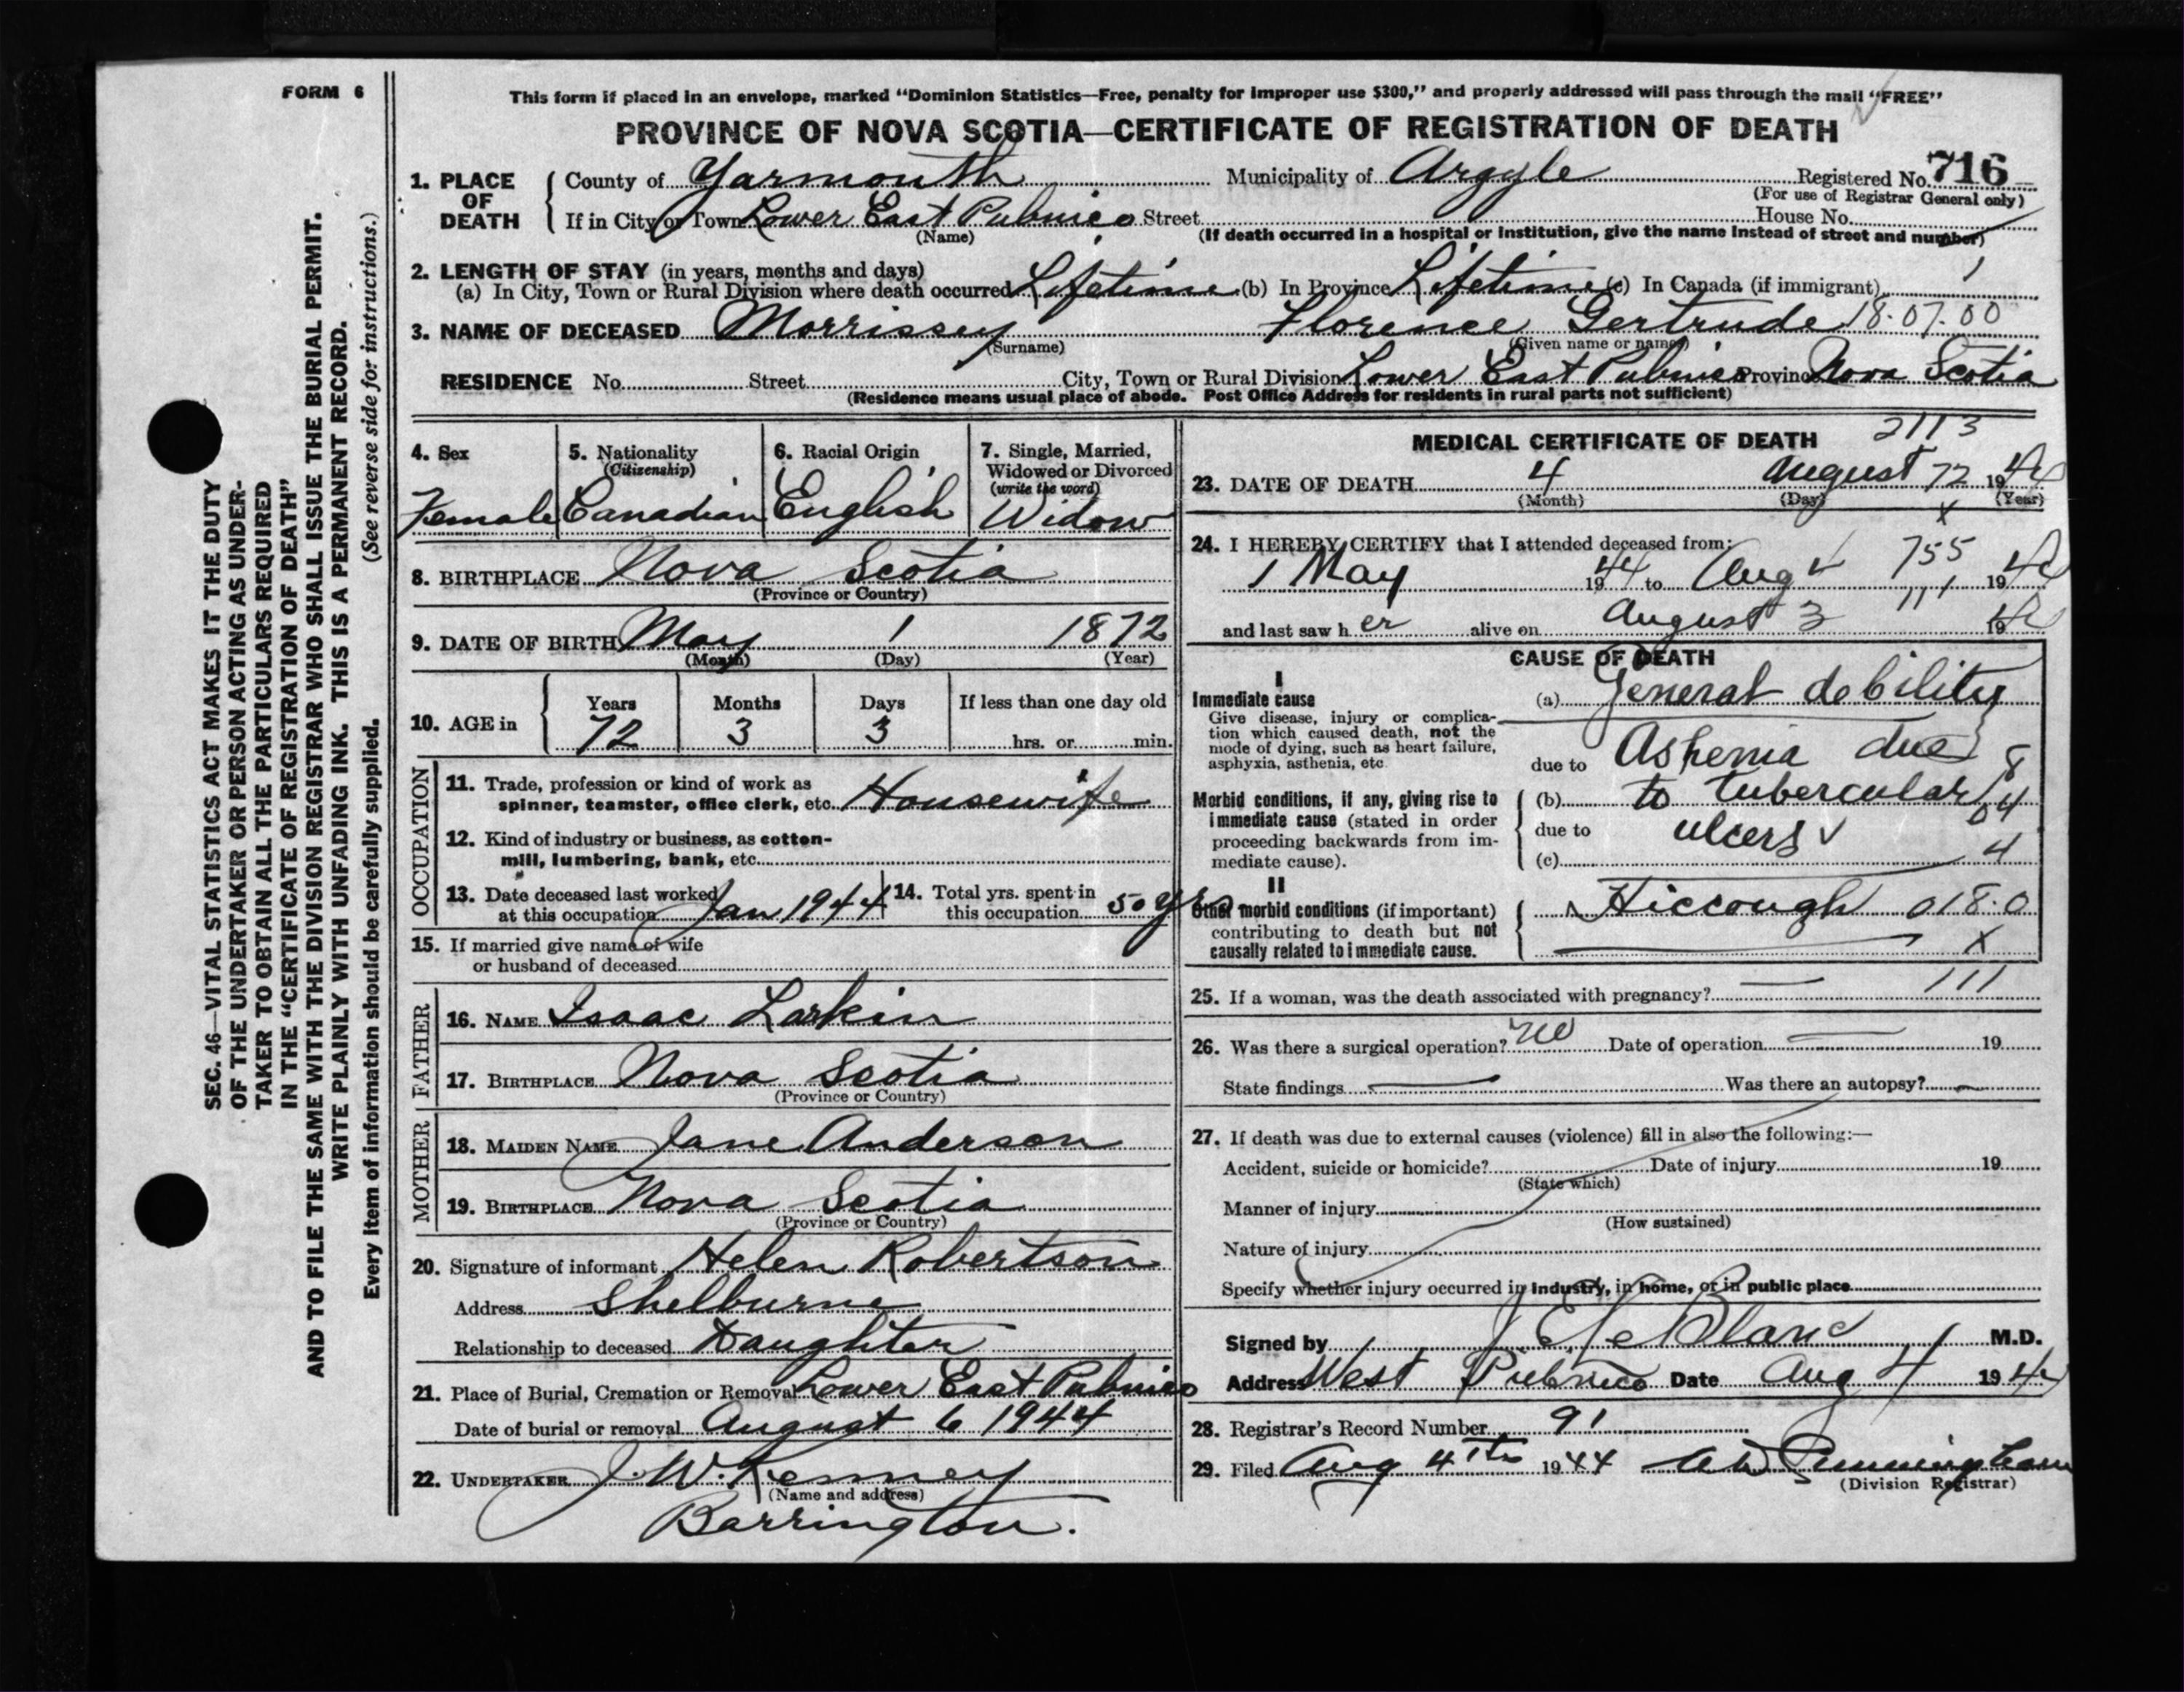 FORM 6
This form if placed in an envelope, marked "Dominion Statistics—Free, penalty for improper use $300," and properly addressed will pass through the mail "FREE"
PROVINCE OF NOVA SCOTIA—CERTIFICATE OF REGISTRATION OF DEATH
1. PLACE OF DEATH
County of Yarmouth Municipality of Argyle Registered No. 716
(For use of Registrar General only)
If in City or Town Lower East Pubnico Street House No.
(Name) (If death occurred in a hospital or institution, give the name instead of street and number)
2. LENGTH OF STAY (in years, months and days)
(a) In City, Town or Rural Division where death occurred Lifetime (b) In Province Lifetime (c) In Canada (if immigrant)
3. NAME OF DECEASED Morrissey Florence Gertrude 18.07.00
(Surname) (Given name or names)
RESIDENCE No. Street City, Town or Rural Division Lower East Pubnico Province Nova Scotia
(Residence means usual place of abode. Post Office Address for residents in rural parts not sufficient)
SEC. 46—VITAL STATISTICS ACT MAKES IT THE DUTY
OF THE UNDERTAKER OR PERSON ACTING AS UNDER-
TAKER TO OBTAIN ALL THE PARTICULARS REQUIRED
IN THE "CERTIFICATE OF REGISTRATION OF DEATH"
AND TO FILE THE SAME WITH THE DIVISION REGISTRAR WHO SHALL ISSUE THE BURIAL PERMIT.
WRITE PLAINLY WITH UNFADING INK. THIS IS A PERMANENT RECORD.
Every item of information should be carefully supplied. (See reverse side for instructions.)
4. Sex
Female
5. Nationality
(Citizenship)
Canadian
6. Racial Origin
English
7. Single, Married,
Widowed or Divorced
(write the word)
Widow
8. BIRTHPLACE Nova Scotia
(Province or Country)
9. DATE OF BIRTH May 1 1872
(Month) (Day) (Year)
10. AGE in
Years Months Days If less than one day old
72 3 3 hrs. or min.
OCCUPATION
11. Trade, profession or kind of work as
spinner, teamster, office clerk, etc. Housewife
12. Kind of industry or business, as cotton-
mill, lumbering, bank, etc.
13. Date deceased last worked
at this occupation Jan 1944
14. Total yrs. spent in
this occupation 50 yrs
15. If married give name of wife
or husband of deceased
FATHER
16. NAME Isaac Larkin
17. BIRTHPLACE Nova Scotia
(Province or Country)
MOTHER
18. MAIDEN NAME Jane Anderson
19. BIRTHPLACE Nova Scotia
(Province or Country)
20. Signature of informant Helen Robertson
Address Shelburne
Relationship to deceased Daughter
21. Place of Burial, Cremation or Removal Lower East Pubnico
Date of burial or removal August 6 1944
22. UNDERTAKER J. W. Kenney
(Name and address)
Barrington.
MEDICAL CERTIFICATE OF DEATH 2113
23. DATE OF DEATH 4 August 72 1944
(Month) (Day) (Year)
x
24. I HEREBY CERTIFY that I attended deceased from:
1 May 1944 to Aug 4 755 1944
and last saw her alive on August 3 111 1944
CAUSE OF DEATH
I
Immediate cause
Give disease, injury or complica-
tion which caused death, not the
mode of dying, such as heart failure,
asphyxia, asthenia, etc.
(a) General debility
due to Ashenia due
Morbid conditions, if any, giving rise to
immediate cause (stated in order
proceeding backwards from im-
mediate cause).
(b) to tubercular
due to ulcers
(c)
8
04
4
II
Other morbid conditions (if important)
contributing to death but not
causally related to immediate cause.
Hiccough 018.0
x
25. If a woman, was the death associated with pregnancy? — 111
26. Was there a surgical operation? no Date of operation — 19
State findings — Was there an autopsy? —
27. If death was due to external causes (violence) fill in also the following:—
Accident, suicide or homicide? Date of injury 19
(State which)
Manner of injury
(How sustained)
Nature of injury
Specify whether injury occurred in industry, in home, or in public place
Signed by J E LeBlanc M.D.
Address West Pubnico Date Aug 4 1944
28. Registrar's Record Number 91
29. Filed Aug 4th 1944
(Division Registrar)